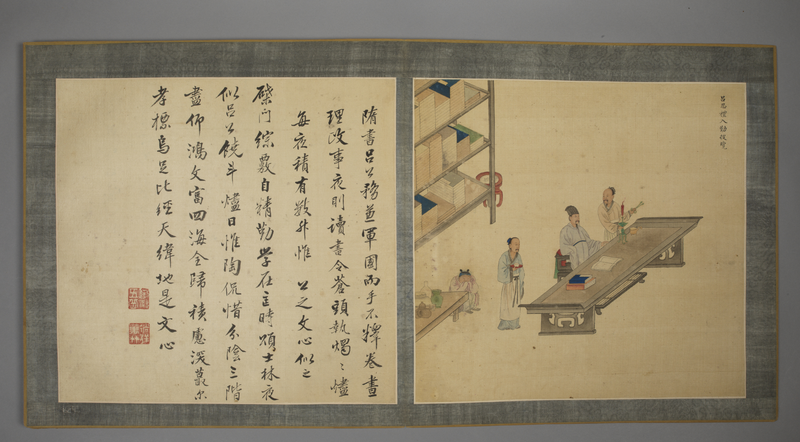 呂思禮
隋書呂公務兼軍國而手不釋卷晝
理政事夜則讀書令蒼頭執燭〻燼
每夜積有數升惟 公之文心似之
門綜覈自精勤學在官時頌士林夜
似呂公饒斗燼日惟陶侃惜分陰三階
盡仰鴻文富四海全歸積慮深莫尔
孝標烏足比經天緯地是文心